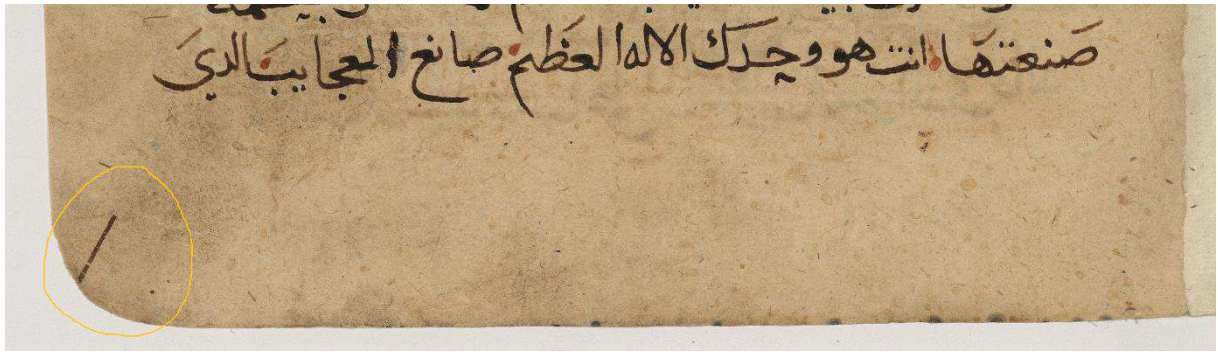 صنعتها انت هو وحدك الاله العظيم صانع العجايب الدي